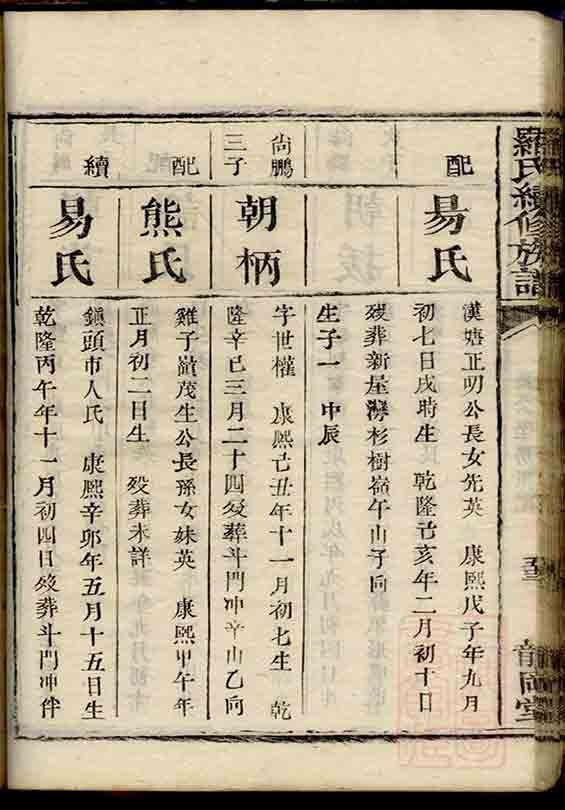 羅氏續修族譜
五三
韻岡堂
配
易氏
漢塘正明公長女先英 康熙戊子年九月
初七日戌時生 乾隆己亥年二月初十日
歿葬新屋灣杉樹嶺午山子向
生子一 中辰
尚鵬
三子
朝柄
字世權 康熙己丑年十一月初七生 乾
隆辛巳三月二十四歿葬斗門冲辛山乙向
配
熊氏
雞子嶺茂生公長孫女妹英 康熙甲午年
正月初二日生 歿葬未詳
續
易氏
鎮頭市人氏 康熙辛卯年五月十五日生
乾隆丙午年十一月初四日歿葬斗門冲伴